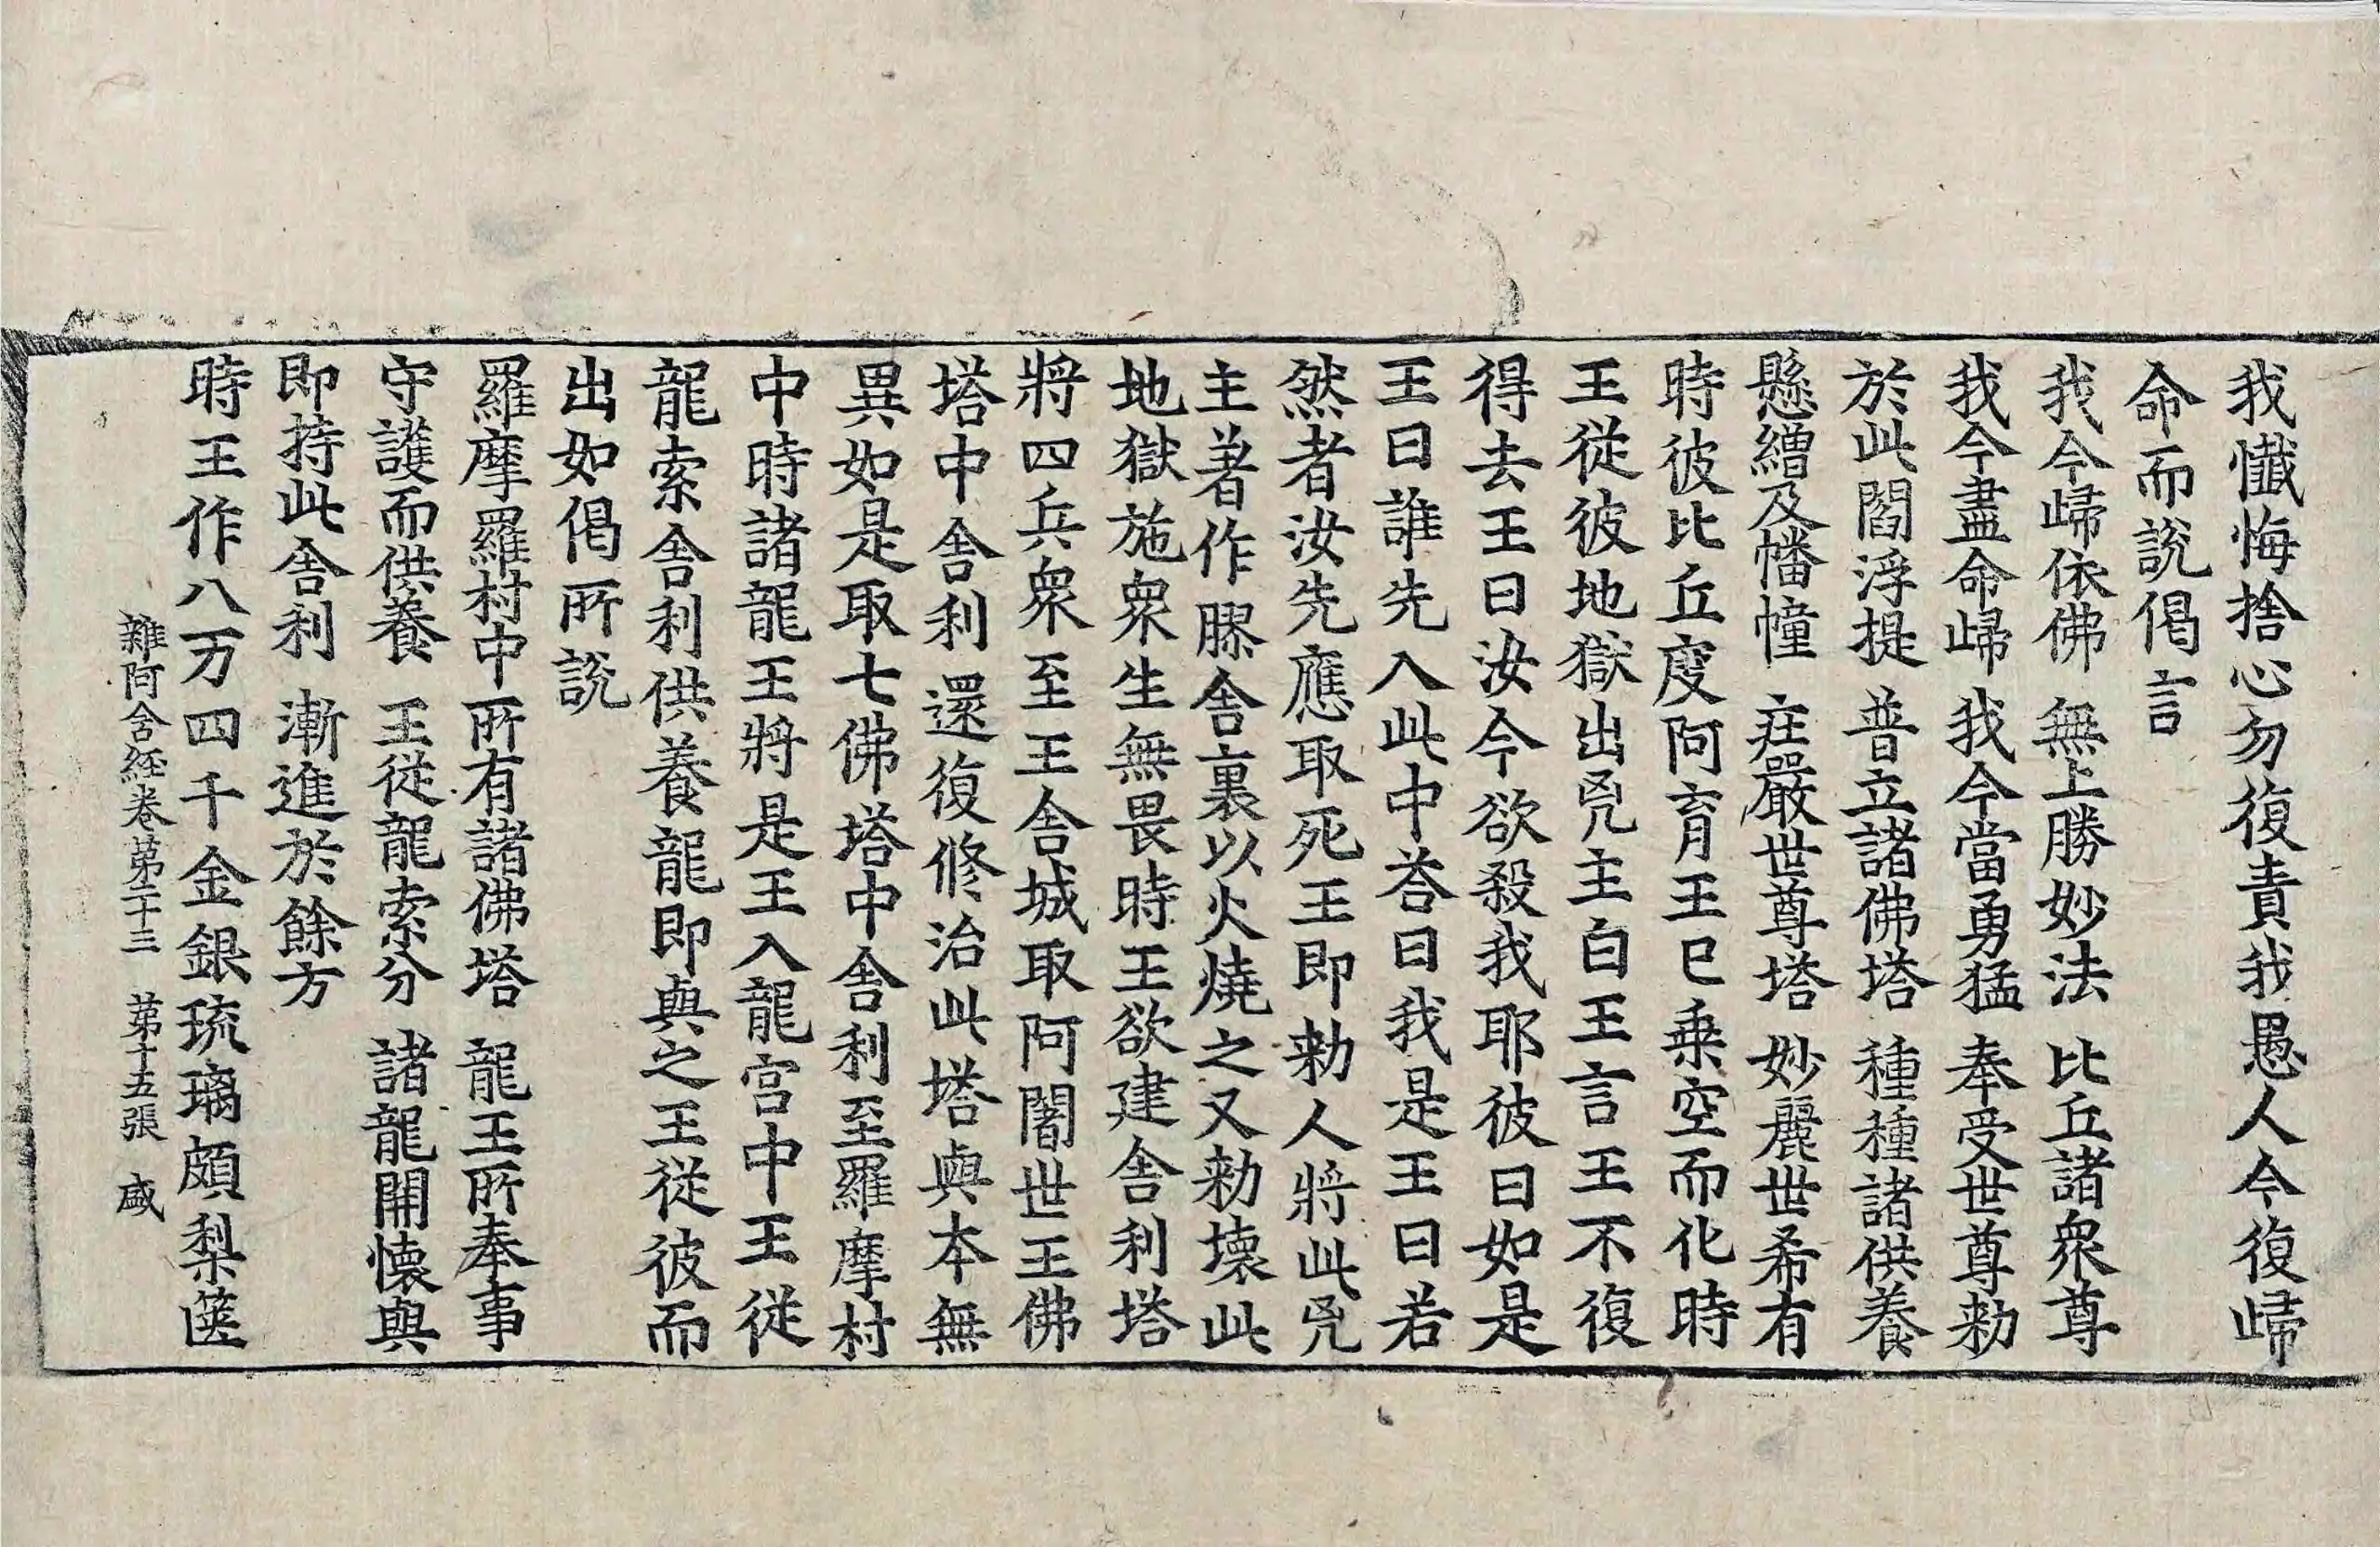 我懺悔捨心勿復責我愚人今復歸
命而說偈言
我今歸依佛　無上勝妙法　比丘諸衆尊
我今盡命歸　我今當勇猛　奉受世尊勑
於此閻浮提　普立諸佛塔　種種諸供養
懸繒及幡幢　莊嚴世尊塔　妙麗世希有
時彼比丘度阿育王已乗空而化時
王從彼地獄出兇主白王言王不復
得去王曰汝今欲殺我耶彼曰如是
王曰誰先入此中荅曰我是王曰若
然者汝先應取死王即勑人將此兇
主著作膠舍裏以火燒之又勑壞此
地獄施衆生無畏時王欲建舍利塔
將四兵衆至王舍城取阿闍世王佛
塔中舍利還復修治此塔與本無
異如是取七佛塔中舍利至羅摩村
中時諸龍王將是王入龍宮中王從
龍索舍利供養龍即與之王從彼而
出如偈所說
羅摩羅村中　所有諸佛塔　龍王所奉事
守護而供養　王從龍索分　諸龍開懷與
即持此舍利　漸進於餘方
時王作八万四千金銀琉璃頗梨篋
雜阿含経卷苐二十三　苐十五張　盛